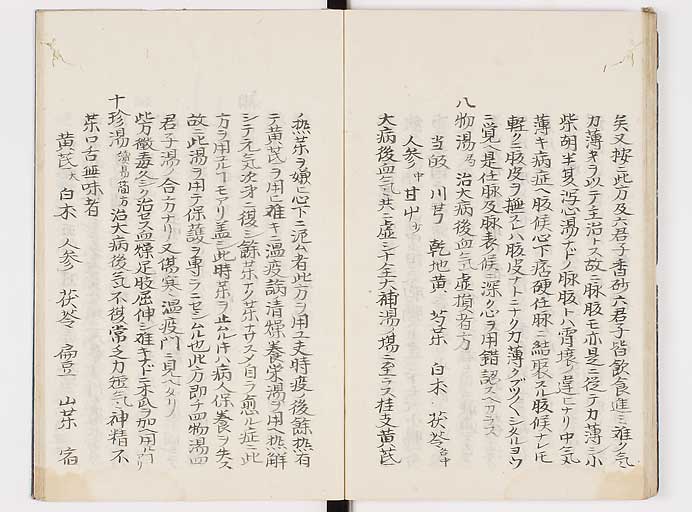 矣又按ニ此方及六君子香砂六君子皆飲食進ミ難ク气
力薄キヲ以テ主治トス故ニ脉腹モ亦是ニ從テ力薄シ小
柴胡半夏泻心湯ナドノ脉腹トハ霄壤ノ違ヒナリ中气
薄キ病症ヘ腹候心下痞硬任脉ニ結聚スル腹候ナレモ
軽ク腹皮ヲ撫スレハ腹皮ナトニナク力薄クブツ〱シタルヨウ
ニ覚ヘ是任脉及脉表ノ候ヲ深ク心ヲ用錯認スヘカラス
八物湯 治大病後血气虚損者方
當皈 川芎 乾地黄 芍藥 白朮 茯苓各中
人参中 甘中少
大病後血气共ニ虚シ十全大補湯ノ場ニ至ラス桂支黄芪
熱藥ヲ嫌ヒ心下ニ泥ム者此方ヲ用ユ天時疫ノ後餘热有
テ黄芪ヲ用ヒ難キニ温疫論清燥養榮湯ヲ用ヘ热解
シテ元气次才ニ復シ餘藥ナク藥ナサスメ自ラ愈ル症ニ此
方ヲ用
故ニ此湯ヲ用テ保護ヲ專ラニセシムル也此方即チ四物湯四
君子湯ノ合方ナリ又傷寒ニ温疫門ニ見ヘタリ
此方黴毒久シク治セス血燥足股屈伸シ難キ下ニ木瓜ヲ加ヘ用ルアリ
十珍湯 治大病後气不復常乏力短气神精不
藥口舌無味者
黄芪大 白朮 人参 茯苓 扁豆 山藥 宿